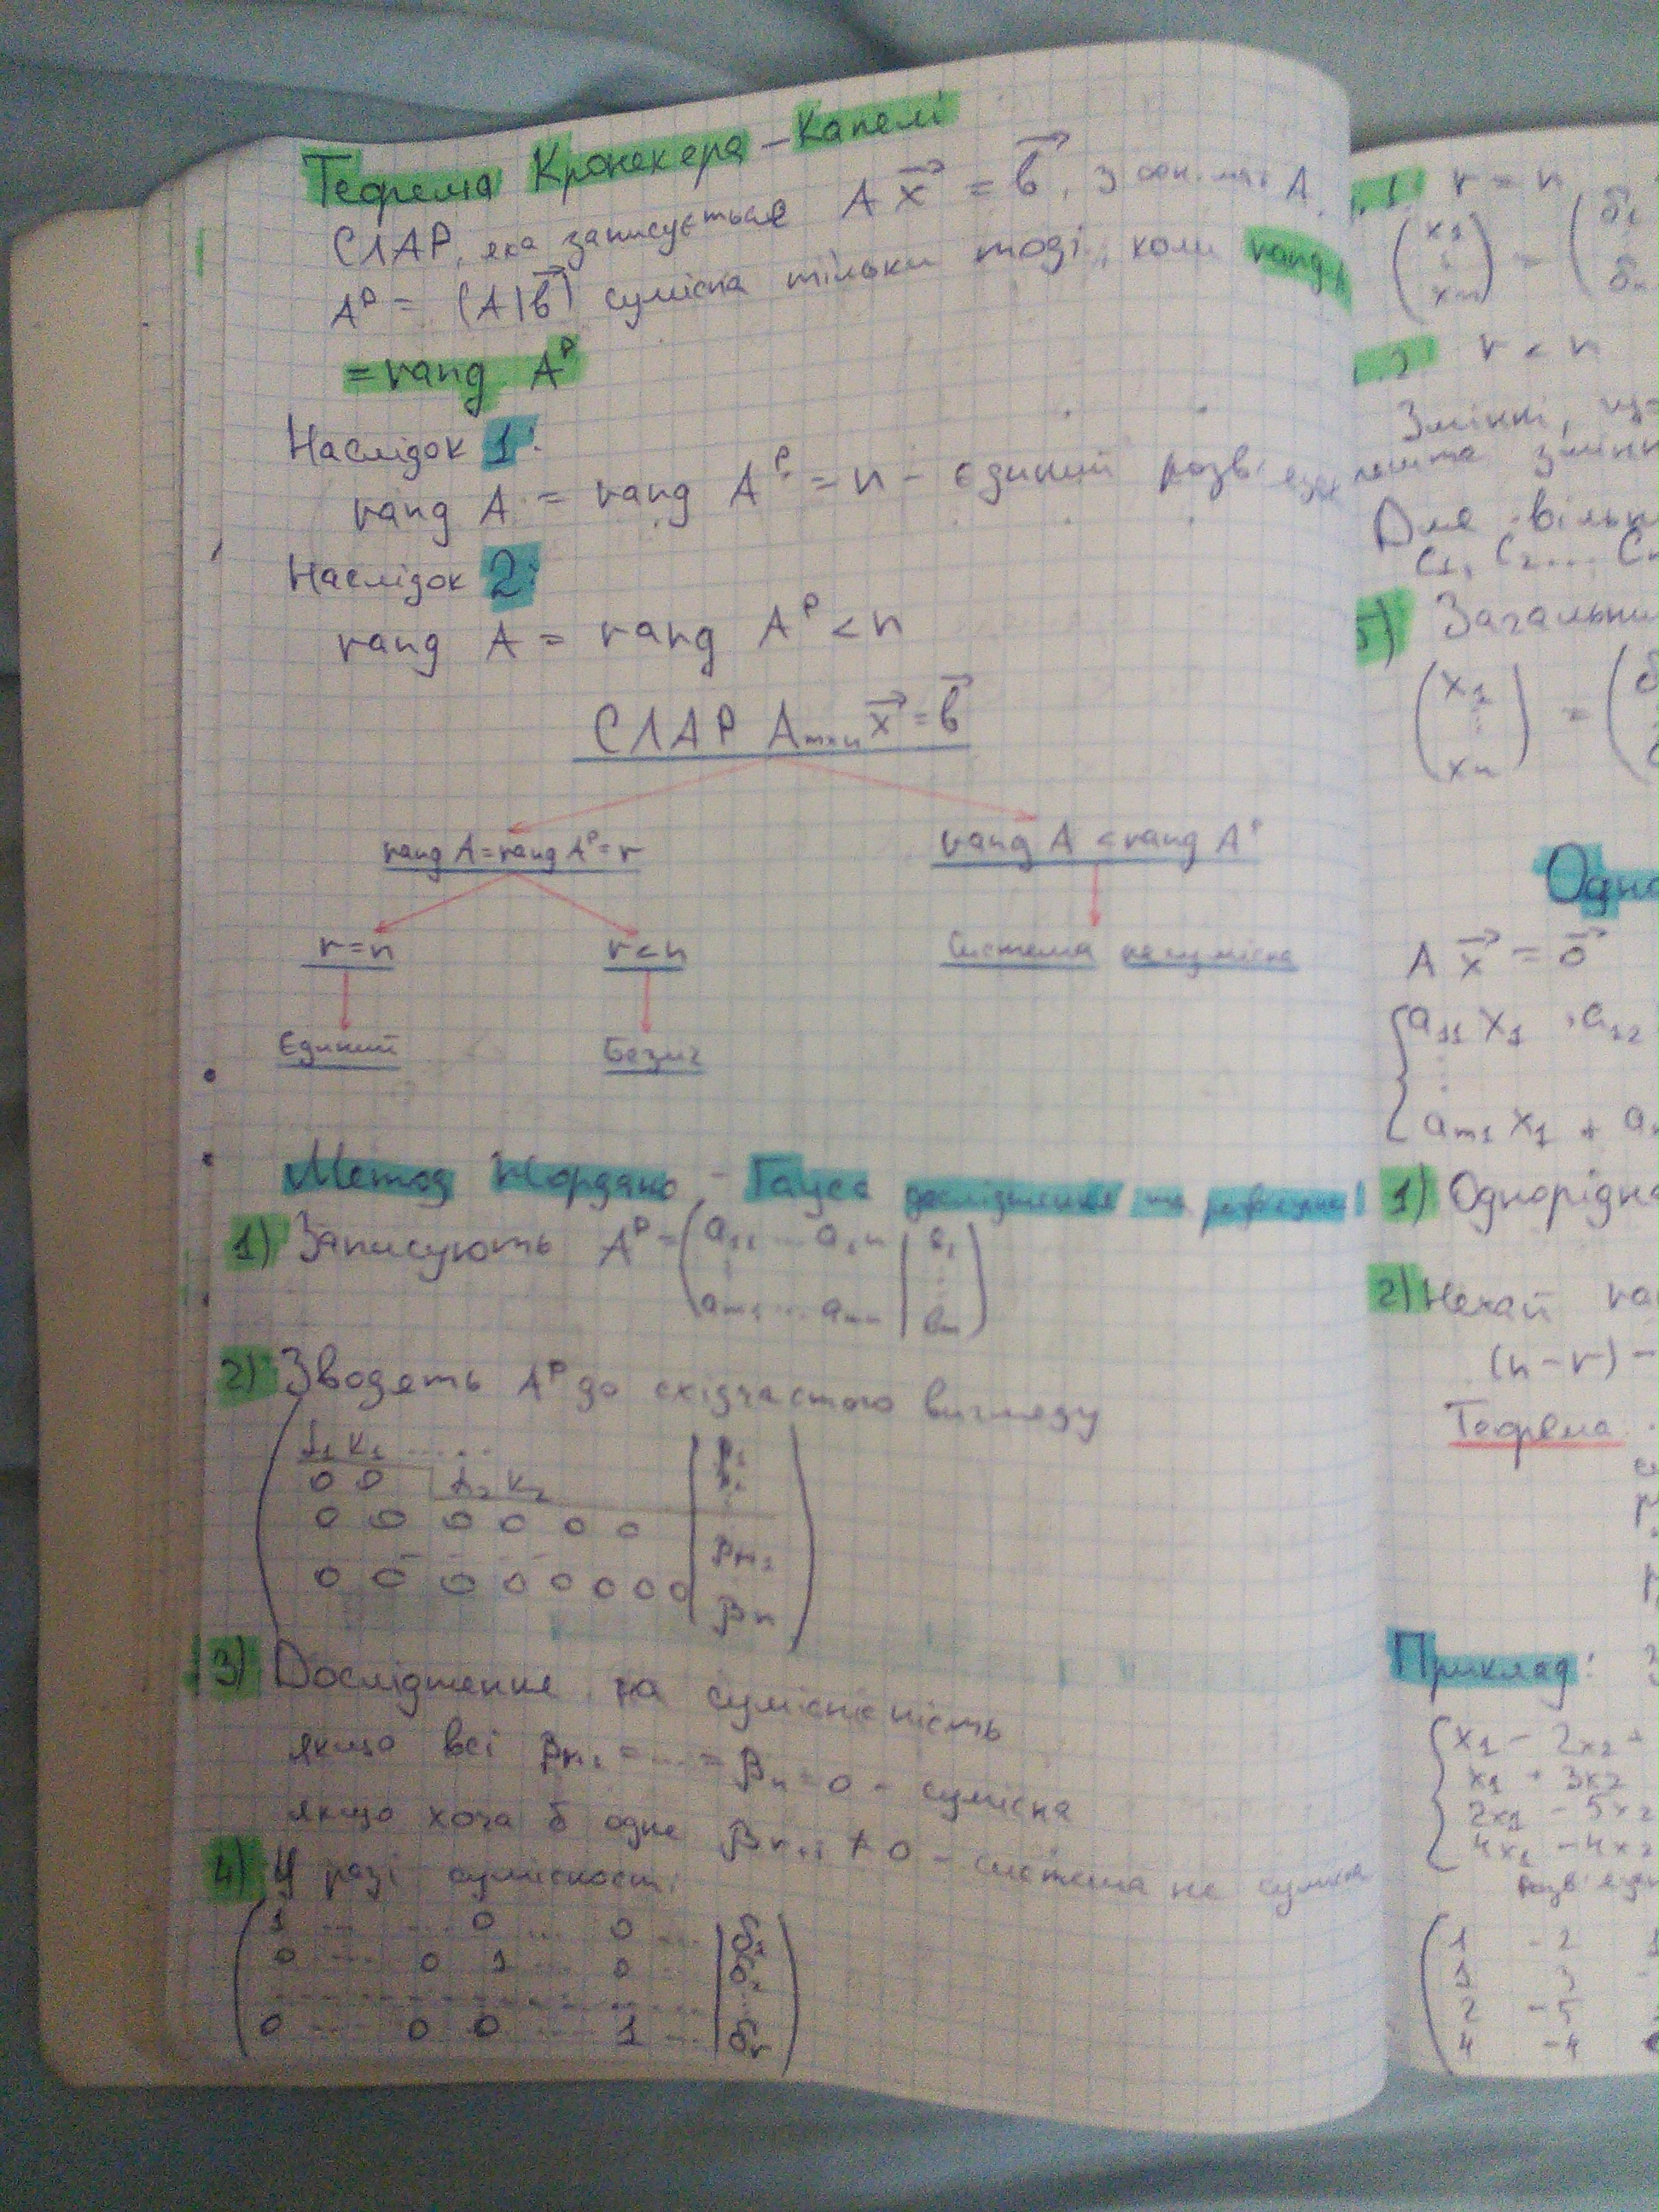 Теорема Кронекера – Капелі
СЛАР, яка записується A x⃗ = b⃗, з A,
Aᵖ = (A|b⃗) сумісна тільки тоді, коли rang A
= rang Aᵖ
Наслідок 1:
rang A = rang Aᵖ = n - єдиний розв'язок
Наслідок 2:
rang A = rang Aᵖ < n
СЛАР Aₘₓₙ x⃗ = b⃗
rang A = rang Aᵖ = r
rang A < rang Aᵖ
r = n
r < n
Система несумісна
Єдиний
Безліч
Метод Жордано - Гауса дослідження та
1) Записують Aᵖ = (a₁₁ ... a₁ₙ | b₁
⋮
aₘ₁ ... aₘₙ | bₘ)
2) Зводять Aᵖ до східчастого вигляду
0 0
0 0 0 0 0 0
0 0 0 0 0 0 0 0 | βₙ
3) Дослідження на
якщо всі = ... = βₙ = 0 - сумісна
якщо хоча б одне βᵣ₊₁ ≠ 0 - система не сумісна
4) У разі сумісності:
1 ... ... 0 ... 0 ... | δ₁
0 ... 0 1 ... 0 ... | δ₂
0 ... 0 0 ... 1 ... | δᵣ
r = n
(x₁ ⋮ xₙ) = (δ₁
δₙ
r < n
Змінні,
решта змінн
Для вільн
C₁, C₂ ... C
5) Загальни
(x₁ ⋮ xₙ) = (
Одно
A x⃗ = o⃗
{a₁₁ x₁ + a₁₂
⋮
aₘ₁ x₁ + a
1) Однорідна
2) Нехай ra
(n - r) -
Теорема
Приклад:
{x₁ - 2x₂ +
x₁ + 3x₂
2x₁ - 5x₂
4x₁ - 4x₂
1 -2 1
1 3
2 -5
4 -4